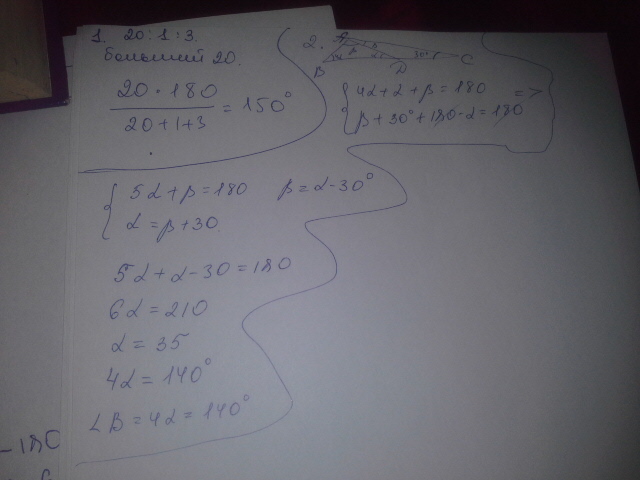 1. 20:1:3.
Больший 20.
20 · 180 / 20+1+3 = 150°
2.
A
B
D
C
30°
4α+α+β=180 =>
β+30°+180-α=180
5α+β=180 β=α-30°
α=β+30.
5α+α-30=180
6α=210
α=35
4α=140°
∠B=4α=140°
-180